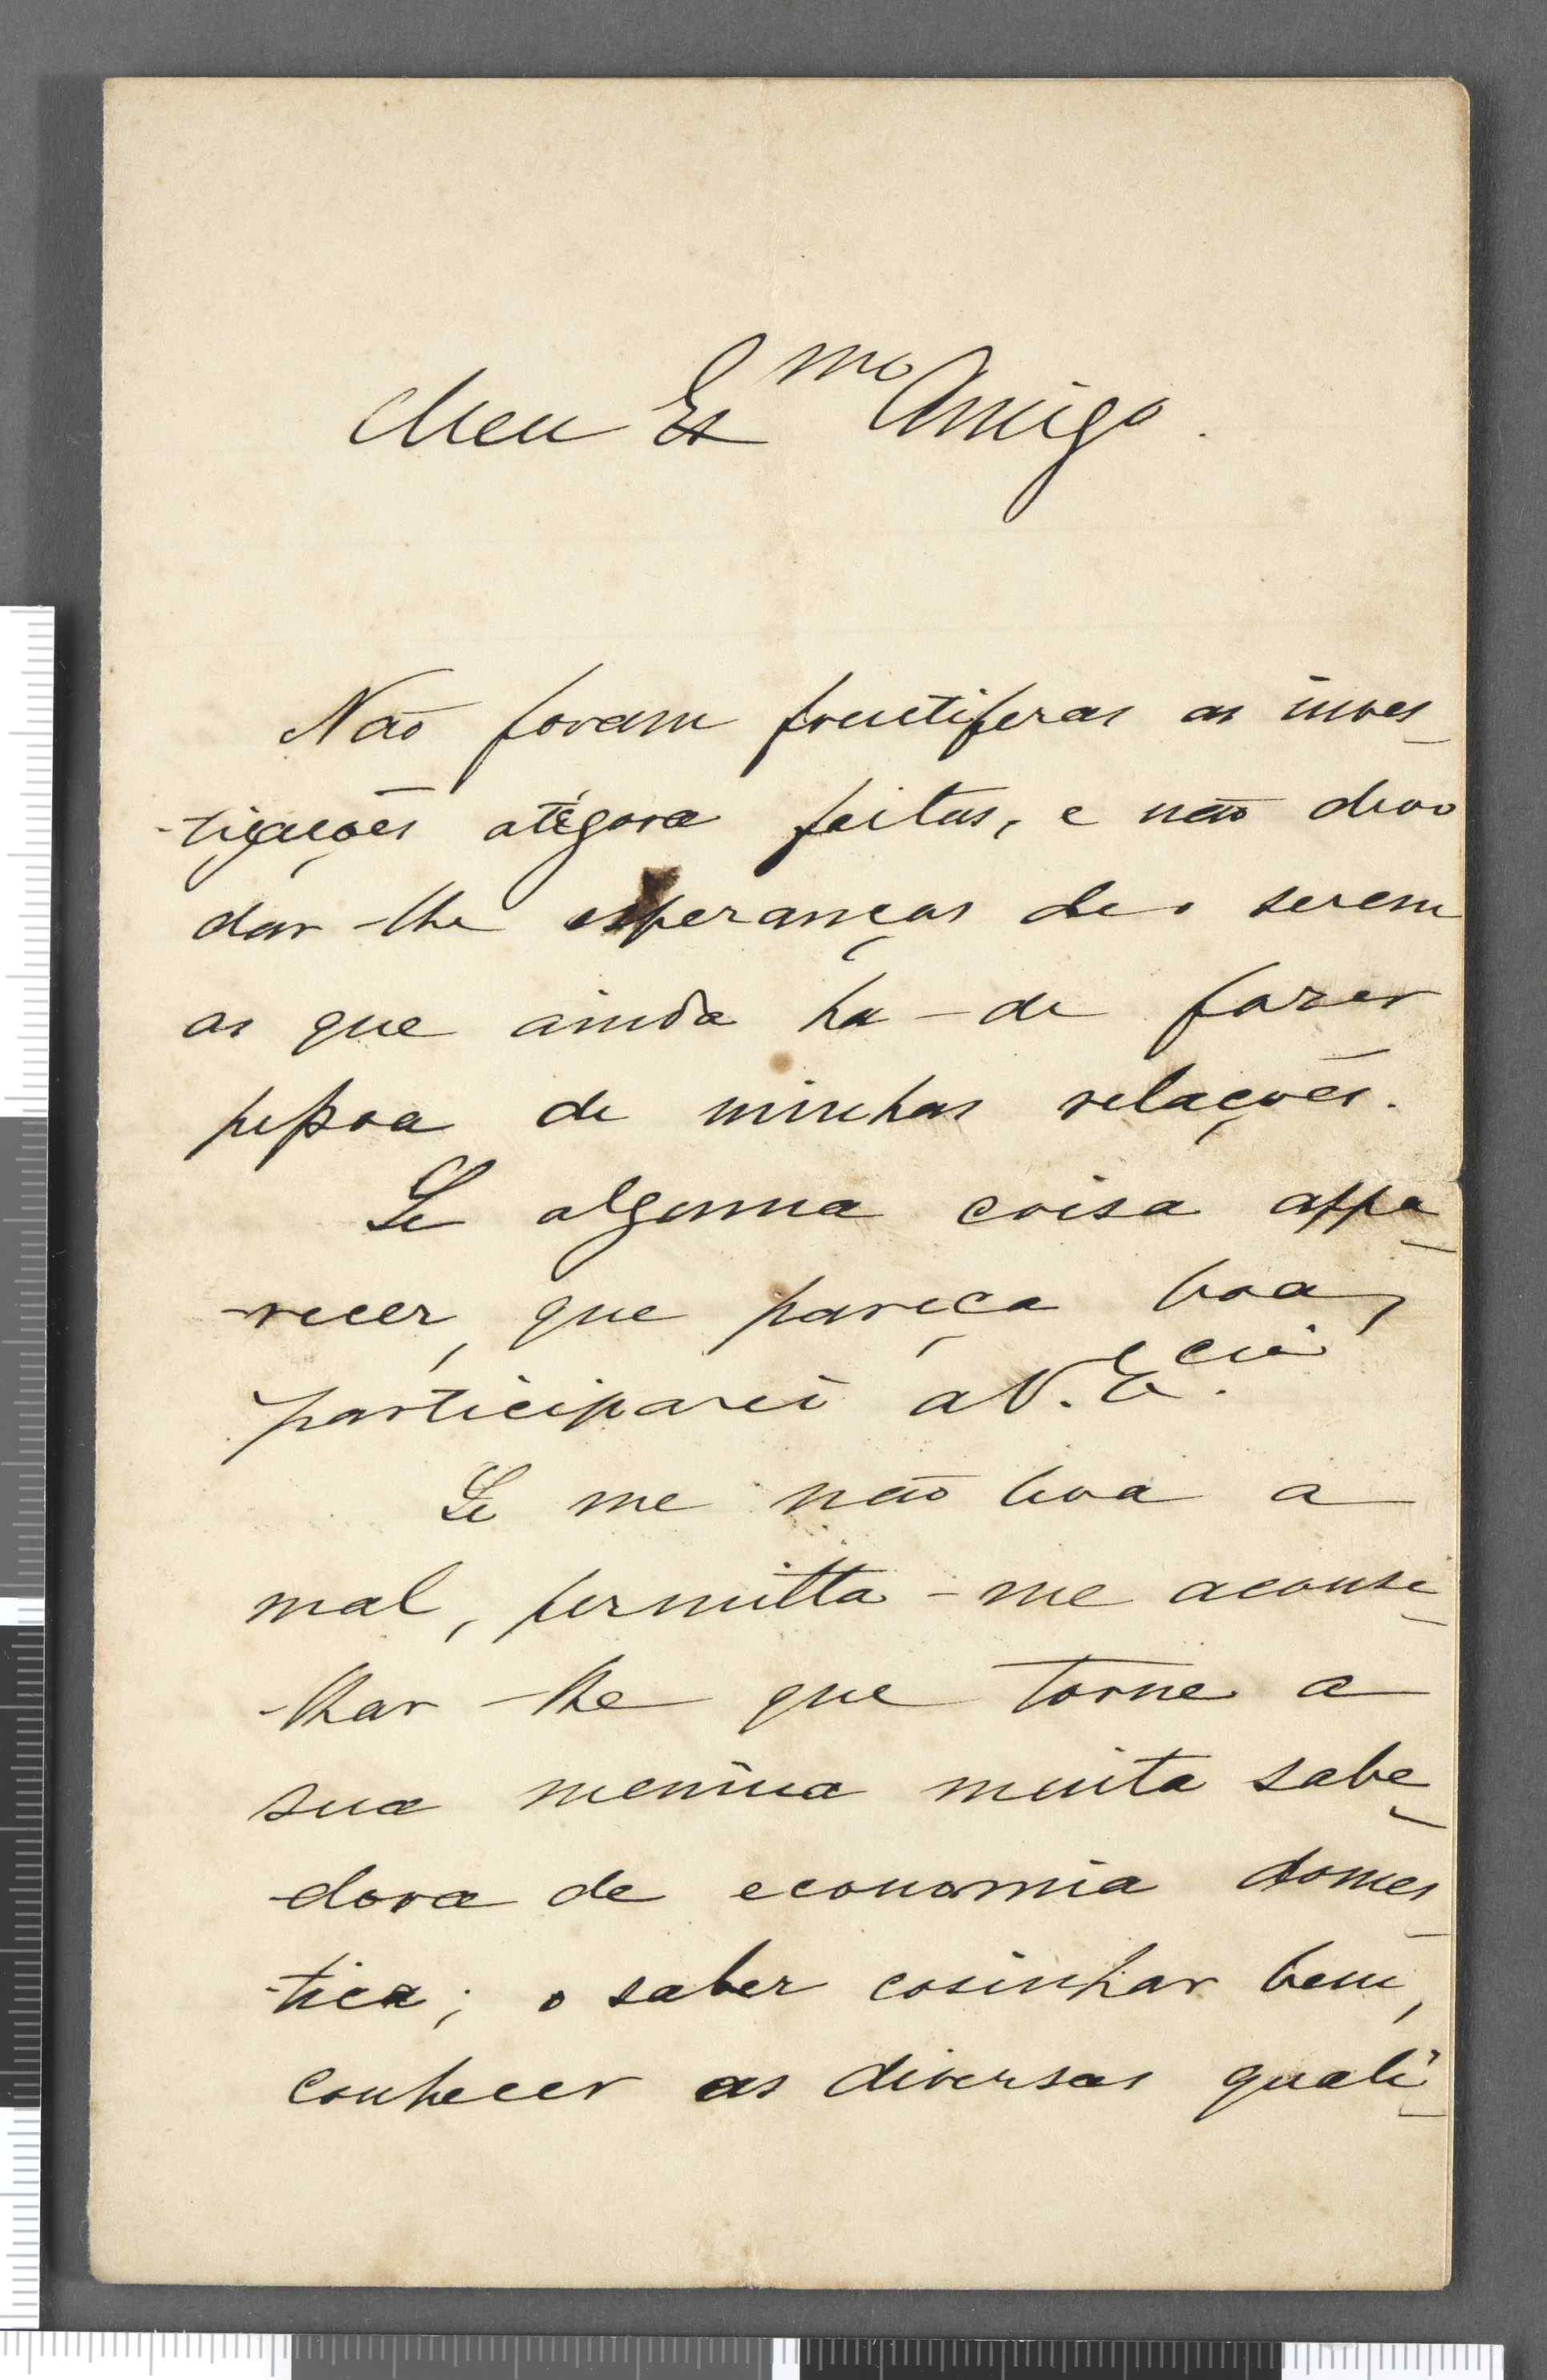 Meu Ex.mo Amigo.
Não foram fructiferas as inves-
-tigações atégora feitas, e não devo
dar-lhe esperanças de o serem
as que ainda ha-de fazer
pessoa de minhas relações.
Se alguma coisa appa-
-recer, que pareça boa,
participarei a V. E.cia
Se me não leva a
mal, permitta-me aconse-
-lhar-lhe que torne a
sua menina muita sabe-
-dora de economia domes-
-tica; o saber cosinhar bem,
conhecer as diversas quali-